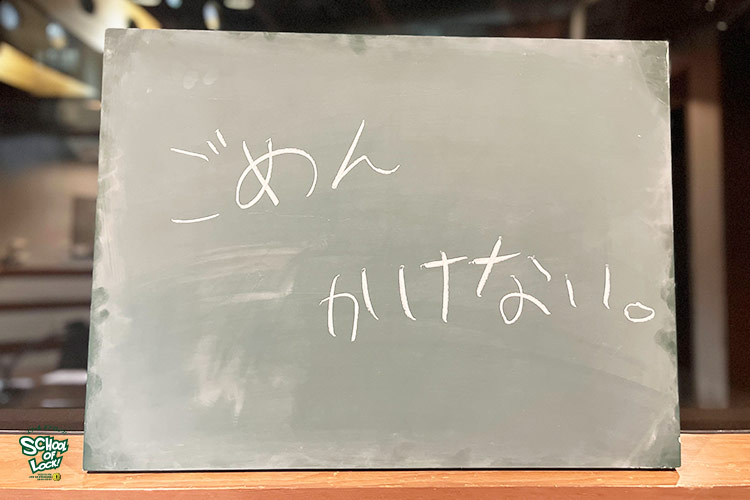 ごめん
かけない。
SCHOOL
OF
LOCK!